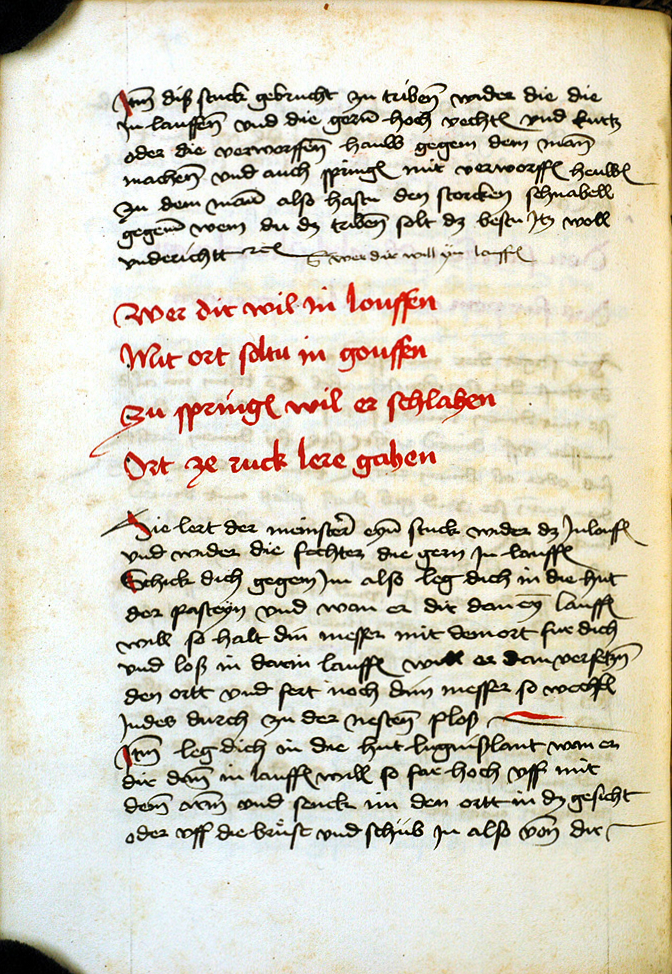 Itm̄ diß stuck gebrucht zu tribeñ wider die die
in lauffeñ vnd die gerñ hoch vechtñ vnd kurtz
oder die verworffeñ hauw gegem dem mañ
macheñ vnd auch springñ mit verworffñ heuwñ
zu dem mañ also hastu den storcken schnabell
gegeñ wem du dz tribeñ solt dz bestu Itz woll
vnderichtt
Wer dir will yn lauffñ
Wer dir wil in louffen
Mit ort soltu in gouffen
Zu springñ wil er schlahen
Ort ze ruck lere gahen
Hie lert der meinster eyñ stuck wider dz Inlauffñ
vnd wider die fechter die gern In lauffñ
Schick dich gegem Im also leg dich in die hut
der pasteyn vnd wan er dir dan eyn lauffñ
will so halt din messer mit dem ort fur dich
vnd loß in darin lauffñ will er dan versetzñ
den ortt vnd fert noch dim messer so wechsel
Indes durch zu der nesteñ ploß
Itm̄ leg dich in die hut luginßlant wan er
dir dañ in lauffñ will so far hoch vff mit
deñ arm̄ vnd senck im den ortt in dz gesicht
oder vff die brust vnd schub in also voñ dir